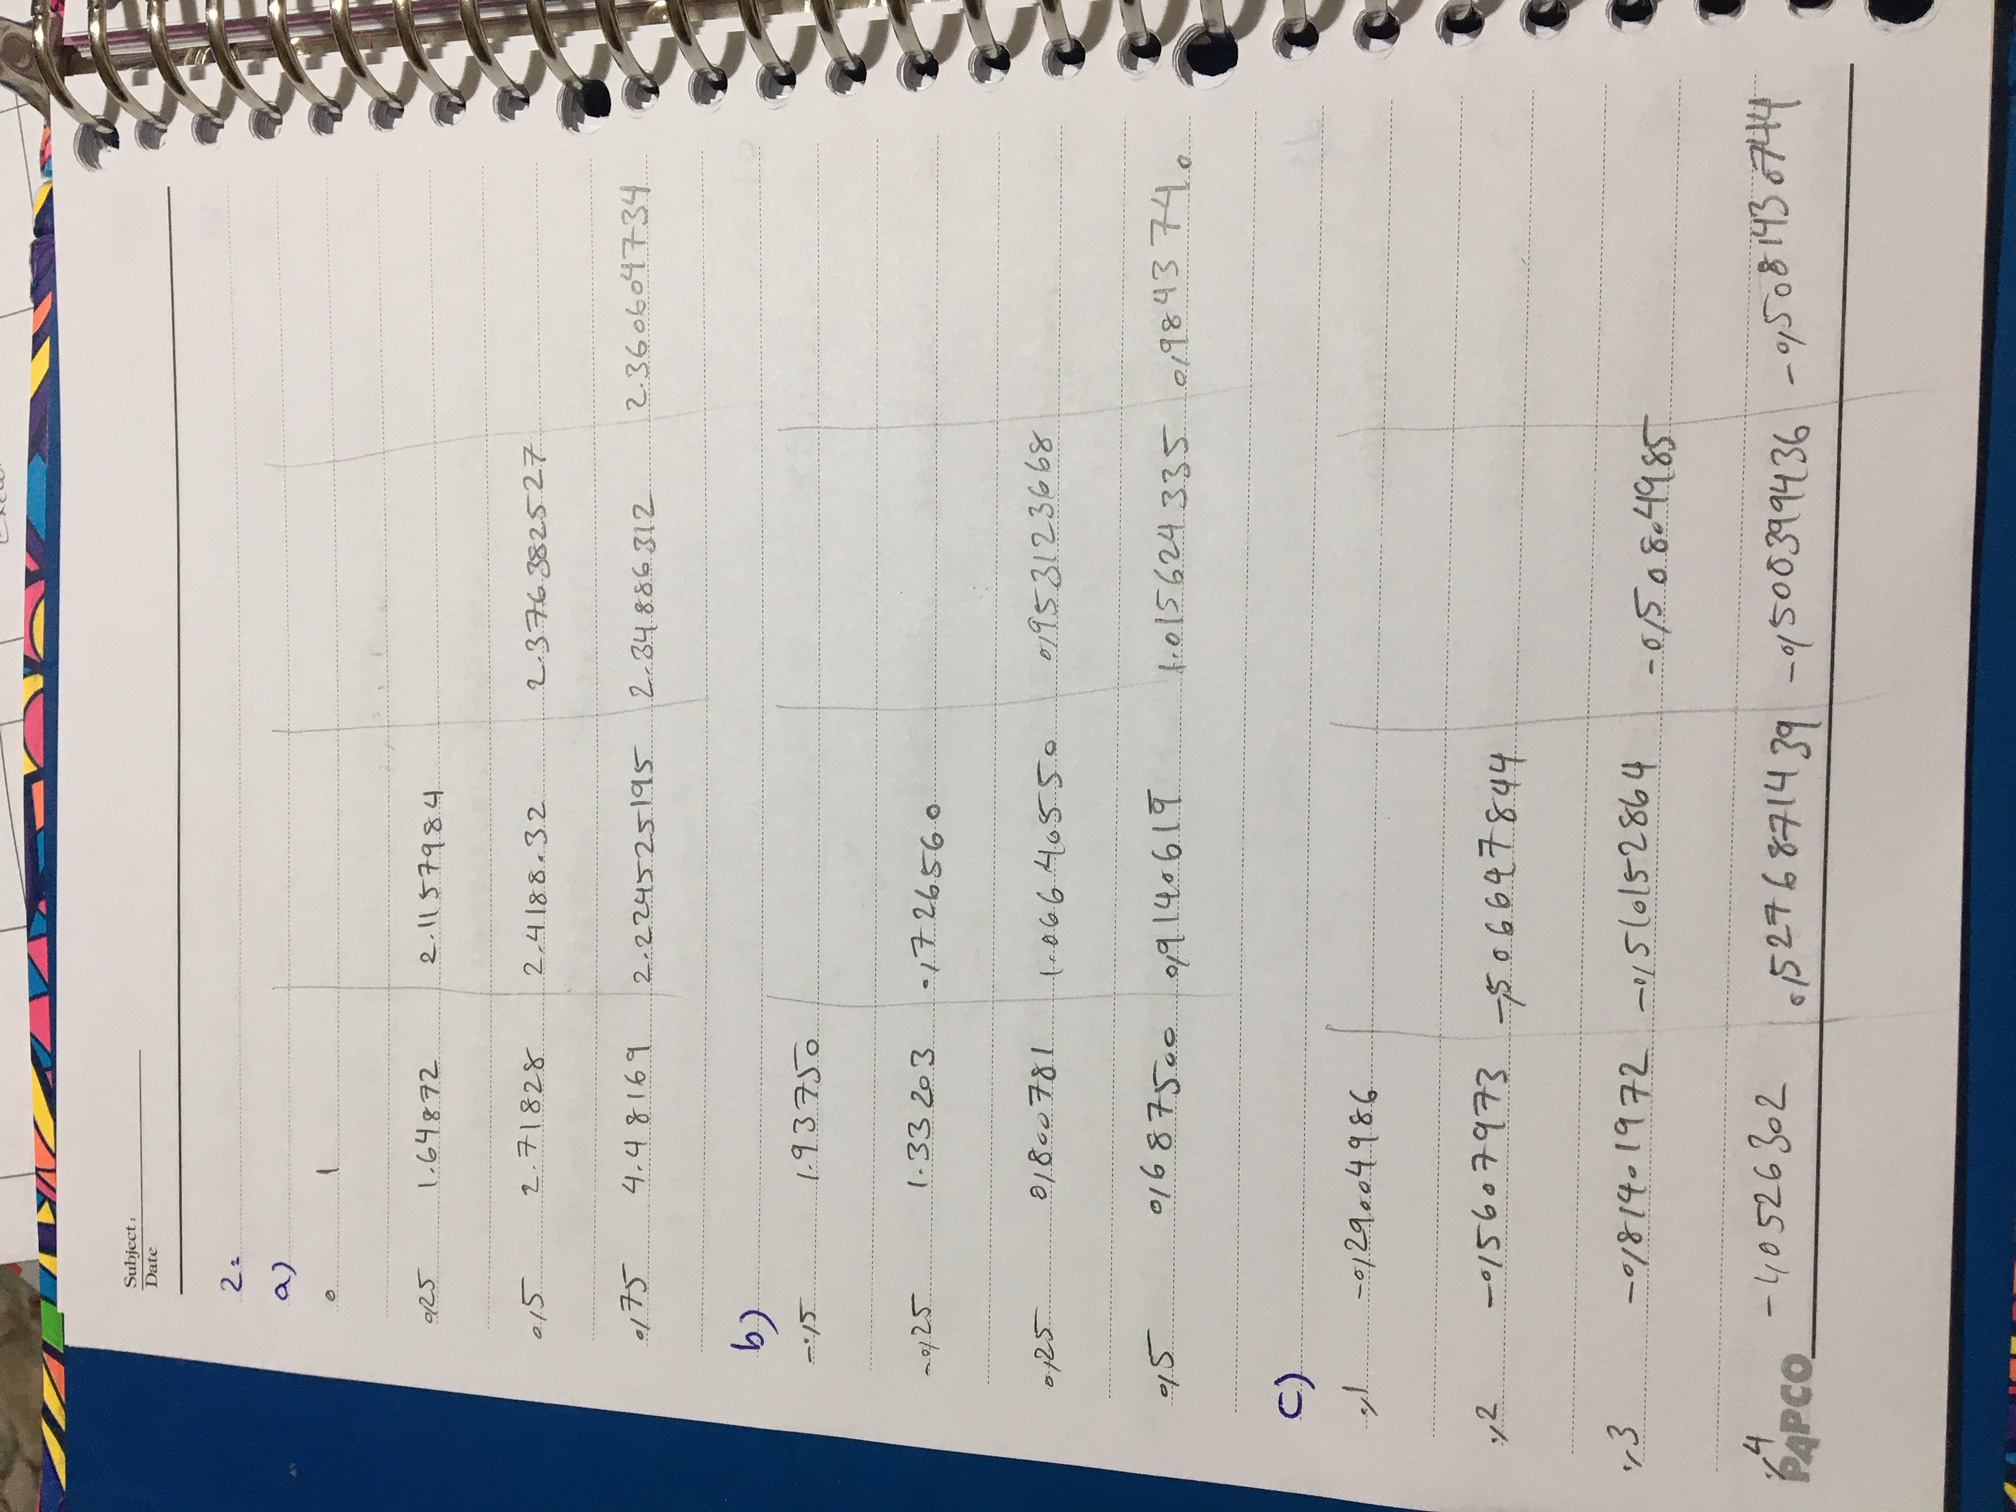 Subject:
Date
2:
a)
0 1
0,25 1.64872 2.1157984
0,5 2.71828 2.4188032 2.376382527
0,75 4.48169 2.224525195 2.34886312 2.360604734
b)
-0,5 1.93750
-0,25 1.33203 0,726560
0,25 0,800781 1.06640550 0,953123668
0,5 0,687500 0,9140619 1.015624335 0,9843740
c)
0,1 -0,29004986
0,2 -0,5607973 -,506647844
0,3 -0,81401972 -0,510152864 -0,50804985
0,4 -1,0526302 0,5276871439 -0,500399436 -0,5081430744
PAPCO